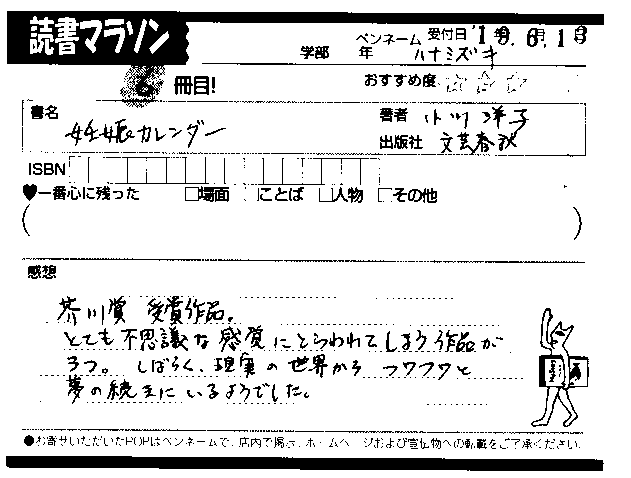 読書マラソン
ペンネーム 受付日 '19.6.13
学部 年 ハナミズキ
6 冊目!
おすすめ度 ☆☆☆
書名 妊娠カレンダー
著者 小川洋子
出版社 文芸春秋
ISBN
♥一番心に残った □場面 □ことば □人物 □その他
( )
感想
芥川賞 受賞作品。
とても不思議な感覚にとらわれてしまう作品が
3つ。しばらく、現実の世界から フワフワと
夢の続きにいるようでした。
●お寄せいただいたPOPはペンネームで、店内で掲示、ホームページおよび宣伝物への転載をご了承ください。